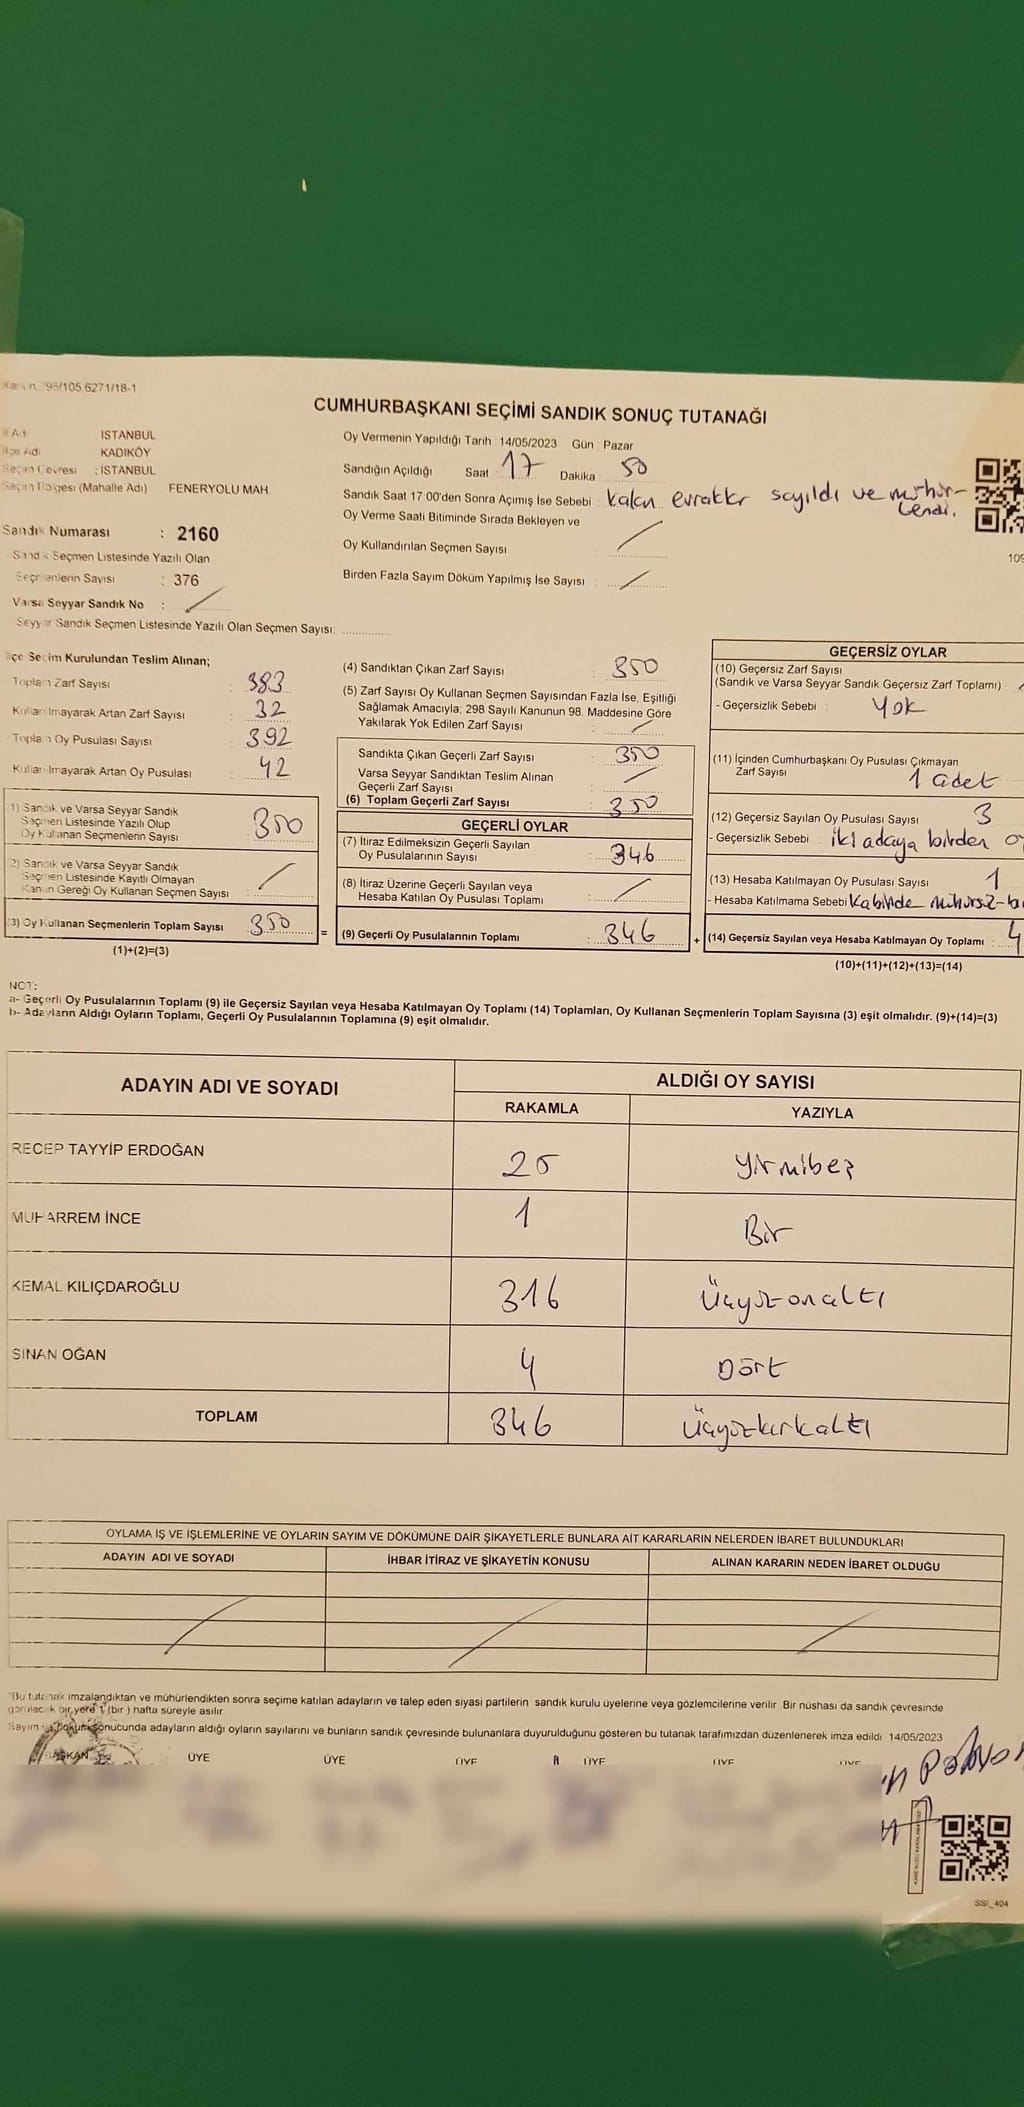 CUMHURBAŞKANI SEÇİMİ SANDIK SONUÇ TUTANAĞI
İl Adı İSTANBUL
İlçe Adı KADIKÖY
Seçim Çevresi : İSTANBUL
Seçim Bölgesi (Mahalle Adı) FENERYOLU MAH.
Sandık Numarası : 2160
Sandık Seçmen Listesinde Yazılı Olan
Seçmenlerin Sayısı : 376
Varsa Seyyar Sandık No : /
Seyyar Sandık Seçmen Listesinde Yazılı Olan Seçmen Sayısı:
Oy Vermenin Yapıldığı Tarih 14/05/2023 Gün Pazar
Sandığın Açıldığı Saat 17 Dakika 50
Sandık Saat 17:00'den Sonra Açımış İse Sebebi : Kalan evraklar sayıldı ve mühür-
lendi.
Oy Verme Saati Bitiminde Sırada Bekleyen ve
Oy Kullandırılan Seçmen Sayısı : /
Birden Fazla Sayım Döküm Yapılmış İse Sayısı : /
109
İlçe Seçim Kurulundan Teslim Alınan;
Toplam Zarf Sayısı : 383
Kullanılmayarak Artan Zarf Sayısı : 32
Toplam Oy Pusulası Sayısı : 392
Kullanılmayarak Artan Oy Pusulası : 42
1) Sandık ve Varsa Seyyar Sandık
Seçmen Listesinde Yazılı Olup
Oy Kullanan Seçmenlerin Sayısı : 350
2) Sandık ve Varsa Seyyar Sandık
Seçmen Listesinde Kayıtlı Olmayan
Kanun Gereği Oy Kullanan Seçmen Sayısı : /
(3) Oy Kullanan Seçmenlerin Toplam Sayısı : 350
(1)+(2)=(3)
(4) Sandıktan Çıkan Zarf Sayısı : 350
(5) Zarf Sayısı Oy Kullanan Seçmen Sayısından Fazla İse, Eşitliği
Sağlamak Amacıyla; 298 Sayılı Kanunun 98. Maddesine Göre
Yakılarak Yok Edilen Zarf Sayısı : /
Sandıkta Çıkan Geçerli Zarf Sayısı : 350
Varsa Seyyar Sandıktan Teslim Alınan
Geçerli Zarf Sayısı : /
(6) Toplam Geçerli Zarf Sayısı : 350
GEÇERLİ OYLAR
(7) İtiraz Edilmeksizin Geçerli Sayılan
Oy Pusulalarının Sayısı : 346
(8) İtiraz Üzerine Geçerli Sayılan veya
Hesaba Katılan Oy Pusulası Toplamı : /
= (9) Geçerli Oy Pusulalarının Toplamı : 346
GEÇERSİZ OYLAR
(10) Geçersiz Zarf Sayısı
(Sandık ve Varsa Seyyar Sandık Geçersiz Zarf Toplamı)
- Geçersizlik Sebebi : Yok
(11) İçinden Cumhurbaşkanı Oy Pusulası Çıkmayan
Zarf Sayısı 1 adet
(12) Geçersiz Sayılan Oy Pusulası Sayısı 3
- Geçersizlik Sebebi : iki adaya birden
(13) Hesaba Katılmayan Oy Pusulası Sayısı 1
- Hesaba Katılmama Sebebi Kabinde mühürsüz
+ (14) Geçersiz Sayılan veya Hesaba Katılmayan Oy Toplamı : 4
(10)+(11)+(12)+(13)=(14)
NOT:
a- Geçerli Oy Pusulalarının Toplamı (9) ile Geçersiz Sayılan veya Hesaba Katılmayan Oy Toplamı (14) Toplamları, Oy Kullanan Seçmenlerin Toplam Sayısına (3) eşit olmalıdır. (9)+(14)=(3)
b- Adayların Aldığı Oyların Toplamı, Geçerli Oy Pusulalarının Toplamına (9) eşit olmalıdır.
ADAYIN ADI VE SOYADI ALDIĞI OY SAYISI
RAKAMLA YAZIYLA
RECEP TAYYİP ERDOĞAN 25 Yirmibeş
MUHARREM İNCE 1 Bir
KEMAL KILIÇDAROĞLU 316 Üçyüzonaltı
SİNAN OĞAN 4 Dört
TOPLAM 346 Üçyüzkırkaltı
OYLAMA İŞ VE İŞLEMLERİNE VE OYLARIN SAYIM VE DÖKÜMÜNE DAİR ŞİKAYETLERLE BUNLARA AİT KARARLARIN NELERDEN İBARET BULUNDUKLARI
ADAYIN ADI VE SOYADI İHBAR İTİRAZ VE ŞİKAYETİN KONUSU ALINAN KARARIN NEDEN İBARET OLDUĞU
/ / /
"Bu tutanak imzalandıktan ve mühürlendikten sonra seçime katılan adayların ve talep eden siyasi partilerin sandık kurulu üyelerine veya gözlemcilerine verilir. Bir nüshası da sandık çevresinde
görülecek bir yere 1 (bir) hafta süreyle asılır.
Sayım ve döküm sonucunda adayların aldığı oyların sayılarını ve bunların sandık çevresinde bulunanlara duyurulduğunu gösteren bu tutanak tarafımızdan düzenlenerek imza edildi. 14/05/2023
BAŞKAN ÜYE ÜYE ÜYE ÜYE ÜYE ÜYE
SSI_404